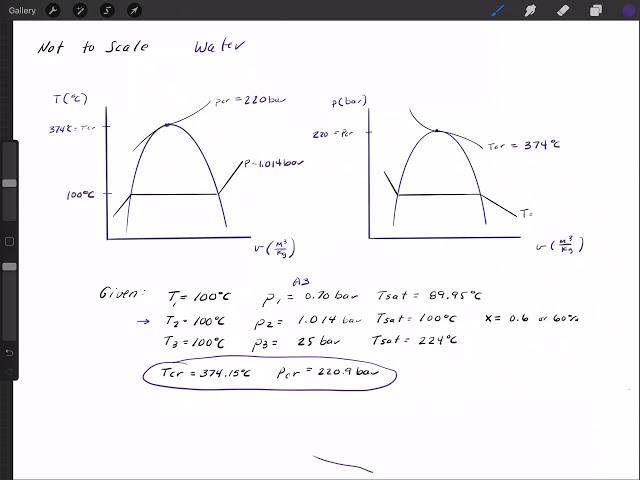 Gallery
Not to Scale Water
T(°C)
Pcr = 220 bar
374°C = Tcr
P=1.014 bar
100°C
v (M³/Kg)
P(bar)
220 = Pcr
Tcr = 374°C
T=
v (M³/Kg)
A3
Given: T₁ = 100°C P₁ = 0.70 bar Tsat = 89.95°C
→ T₂ = 100°C P₂ = 1.014 bar Tsat = 100°C X = 0.6 or 60%
T₃ = 100°C P₃ = 25 bar Tsat = 224°C
Tcr = 374.15°C Pcr = 220.9 bar